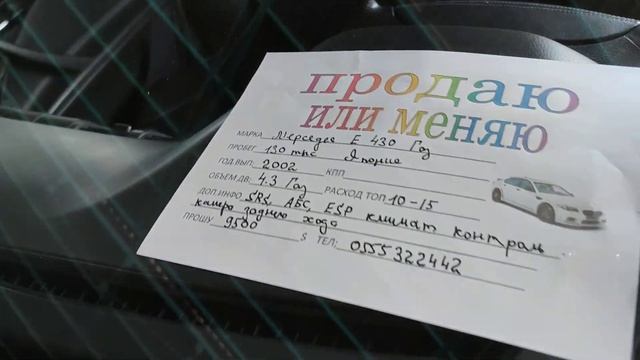 продаю
или меняю
МАРКА Мерседес Е 430 Газ
ПРОБЕГ 130 тыс Япония
ГОД ВЫП. 2002 КПП
ОБЪЕМ ДВ. 4.3 Газ РАСХОД ТОП. 10-15
ДОП. ИНФО SRS, АБС, ESP климат контроль
камера заднего хода
ПРОШУ 9500 $ ТЕЛ: 0555322442